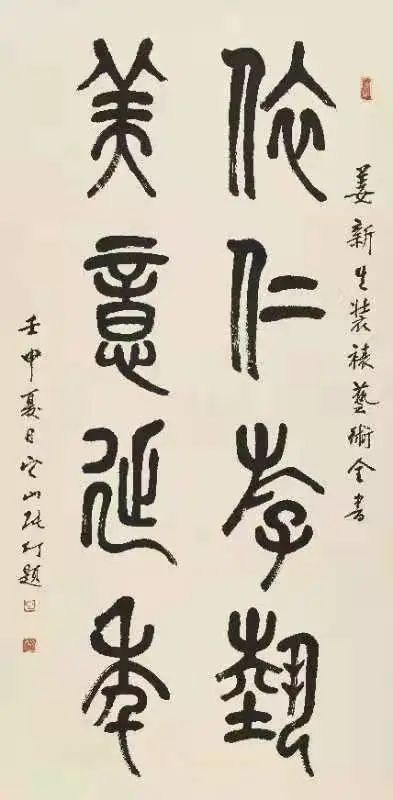 姜新生裝裱藝術全書
依仁斿埶
美意延年
壬申夏日它山張仃題